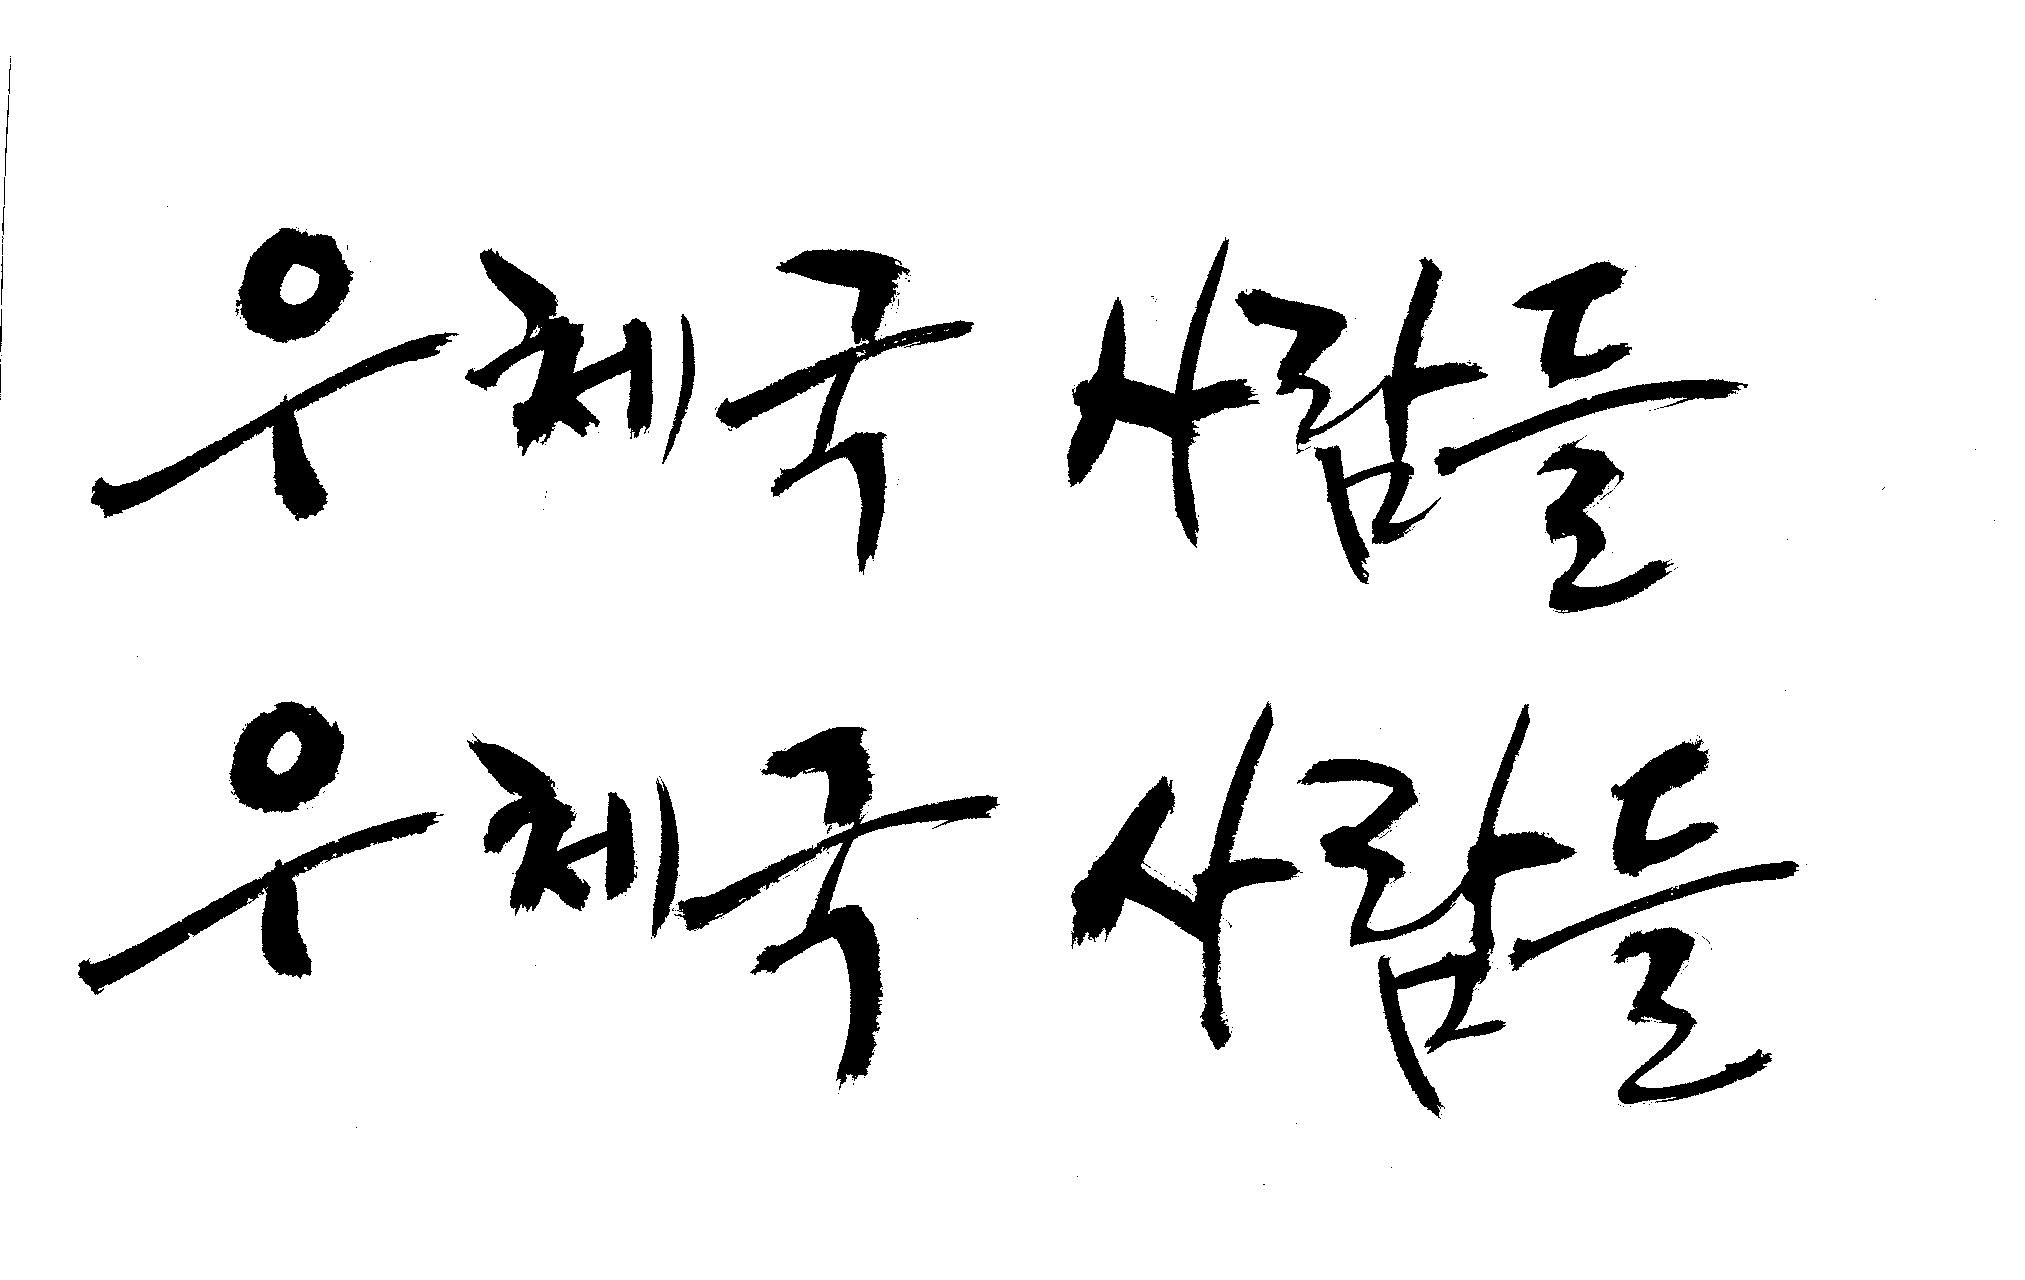 우체국 사람들
우체국 사람들